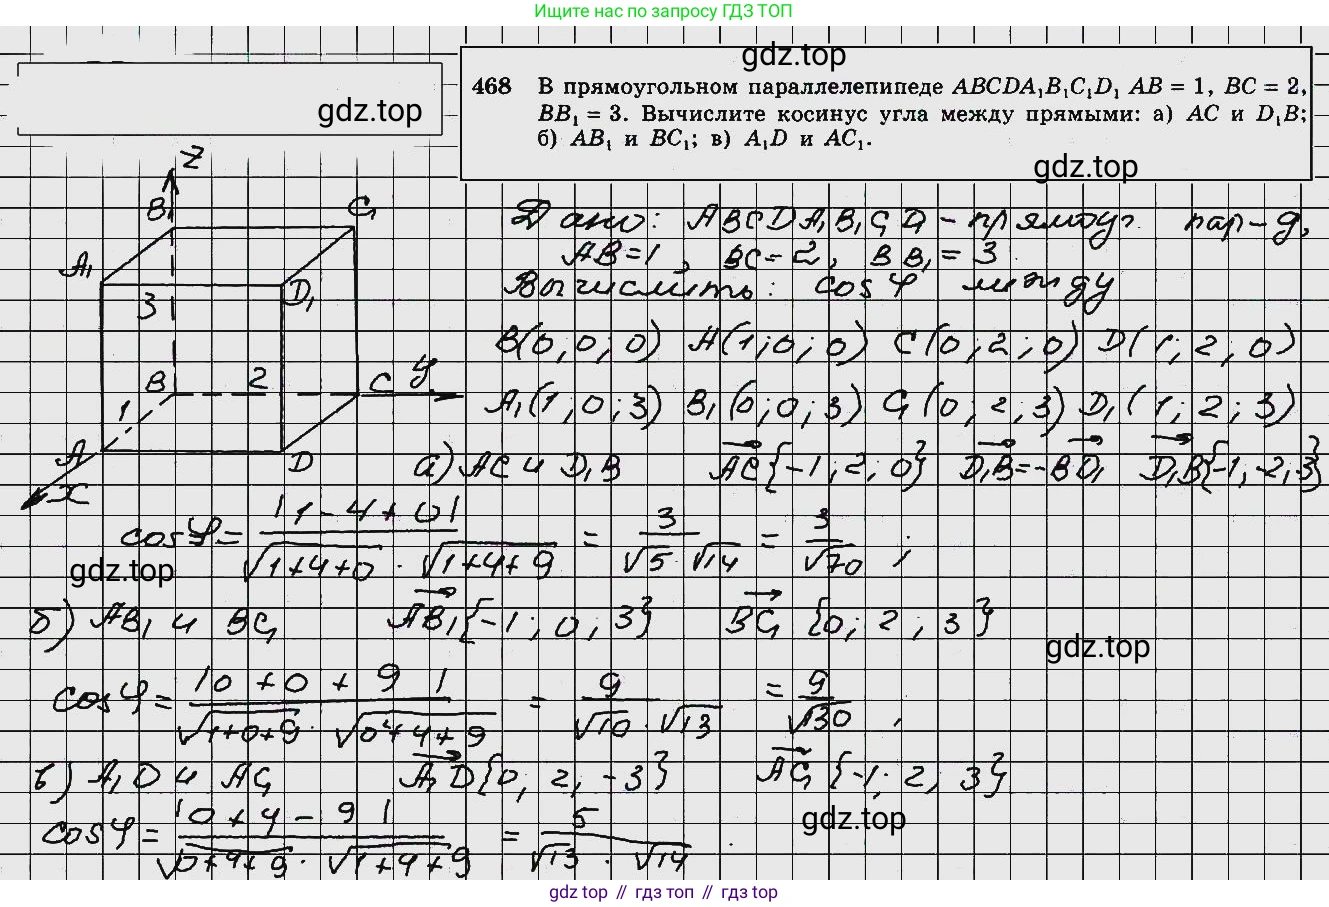 Ищите нас по запросу ГДЗ ТОП
gdz.top
468 В прямоугольном параллелепипеде ABCDA₁B₁C₁D₁ AB = 1, BC = 2,
BB₁ = 3. Вычислите косинус угла между прямыми: а) AC и D₁B;
б) AB₁ и BC₁; в) A₁D и AC₁.
gdz.top
gdz.top
Z
B₁
C₁
A₁
D₁
3
B
2
C
y
1
A
D
x
Дано: ABCDA₁B₁C₁D₁ - прямоуг. пар-д,
AB=1, BC=2, BB₁=3
Вычислить: cos φ между
B(0;0;0) A(1;0;0) C(0;2;0) D(1;2,0)
A₁(1,0;3) B₁(0;0,3) C₁(0;2,3) D₁(1;2;3)
а) AC и D₁B AC{-1,2;0} D₁B=-BD₁ D₁B{-1,-2,-3}
cos φ = |1-4+0| / √1+4+0 · √1+4+9 = 3 / √5 √14 = 3 / √70 ;
gdz.top
б) AB₁ и BC₁ AB₁{-1;0,3} BC₁{0;2,3}
gdz.top
cos φ = |0+0+9| / √1+0+9 · √0+4+9 = 9 / √10 · √13 = 9 / √130 ,
в) A₁D и AC₁ A₁D{0,2,-3} AC₁{-1;2,3}
gdz.top
cos φ = |0+4-9| / √0+4+9 · √1+4+9 = 5 / √13 · √14 .
gdz top // гдз топ // gdz top